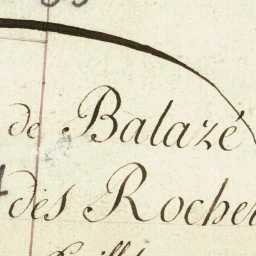 de Balazé
des Rocher